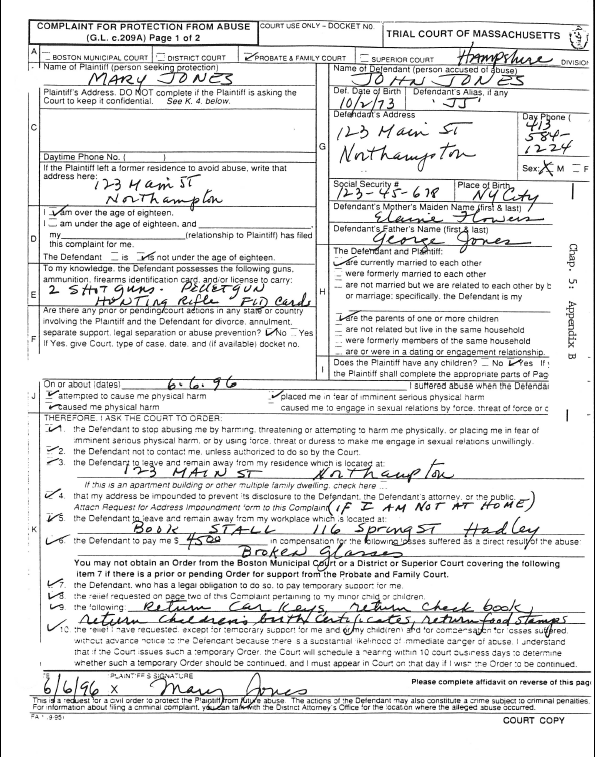 COMPLAINT FOR PROTECTION FROM ABUSE
(G.L. c.209A) Page 1 of 2
COURT USE ONLY – DOCKET NO.
TRIAL COURT OF MASSACHUSETTS
A
BOSTON MUNICIPAL COURT
DISTRICT COURT
PROBATE & FAMILY COURT
SUPERIOR COURT
Hampshire
DIVISION
Name of Plaintiff (person seeking protection)
MARY JONES
Name of Defendant (person accused of abuse)
JOHN JONES
Plaintiff's Address. DO NOT complete if the Plaintiff is asking the
Court to keep it confidential. See K. 4. below.
Def. Date of Birth
Defendant's Alias, if any
10/2/73
"JJ"
C
Daytime Phone No. ( )
G
Defendant's Address
123 Main St
Northampton
Day Phone (
413
584-
1224
Sex: X M F
If the Plaintiff left a former residence to avoid abuse, write that
address here:
123 Main St
Northampton
Social Security #
123-45-678
Place of Birth
NY City
Defendant's Mother's Maiden Name (first & last)
Elaine Flowers
Defendant's Father's Name (first & last)
George Jones
D
I am over the age of eighteen.
I am under the age of eighteen, and
my (relationship to Plaintiff) has filed
this complaint for me.
The Defendant is is not under the age of eighteen.
E
To my knowledge, the Defendant possesses the following guns,
ammunition, firearms identification card, and/or license to carry:
2 SHOTGUNS. PELLETGUN
HUNTING Rifle FID Cards
F
Are there any prior or pending court actions in any state or country
involving the Plaintiff and the Defendant for divorce, annulment,
separate support, legal separation or abuse prevention? No Yes
If Yes, give Court, type of case, date, and (if available) docket no.
H
The Defendant and Plaintiff:
are currently married to each other
were formerly married to each other
are not married but we are related to each other by b
or marriage: specifically, the Defendant is my
are the parents of one or more children
are not related but live in the same household
were formerly members of the same household
are or were in a dating or engagement relationship.
I
Does the Plaintiff have any children? No Yes If
the Plaintiff shall complete the appropriate parts of Pag
Chap. 5: Appendix B
J
On or about (dates) 6.6.96 I suffered abuse when the Defendan
attempted to cause me physical harm
placed me in fear of imminent serious physical harm
caused me physical harm
caused me to engage in sexual relations by force, threat of force or d
K
THEREFORE, I ASK THE COURT TO ORDER:
1. the Defendant to stop abusing me by harming, threatening or attempting to harm me physically, or placing me in fear of
imminent serious physical harm, or by using force, threat or duress to make me engage in sexual relations unwillingly.
2. the Defendant not to contact me, unless authorized to do so by the Court.
3. the Defendant to leave and remain away from my residence which is located at:
123 MAIN ST Northampton
If this is an apartment building or other multiple family dwelling, check here
4. that my address be impounded to prevent its disclosure to the Defendant, the Defendant's attorney, or the public.
Attach Request for Address Impoundment form to this Complaint (IF I AM NOT AT HOME)
5. the Defendant to leave and remain away from my workplace which is located at:
BOOK STALL 116 Spring ST Hadley
6. the Defendant to pay me $ 4500 in compensation for the following losses suffered as a direct result of the abuse
Broken Glasses
You may not obtain an Order from the Boston Municipal Court or a District or Superior Court covering the following
item 7 if there is a prior or pending Order for support from the Probate and Family Court.
7. the Defendant, who has a legal obligation to do so, to pay temporary support for me.
8. the relief requested on page two of this Complaint pertaining to my minor child or children.
9. the following: Return Car Keys, return check book,
return children's birth certificates, return food stamps
10. the relief I have requested, except for temporary support for me and/or my child(ren) and for compensation for losses suffered,
without advance notice to the Defendant because there is a substantial likelihood of immediate danger of abuse. I understand
that if the Court issues such a temporary Order, the Court will schedule a hearing within 10 court business days to determine
whether such a temporary Order should be continued, and I must appear in Court on that day if I wish the Order to be continued.
PLAINTIFF'S SIGNATURE
6/6/96 X Mary Jones
Please complete affidavit on reverse of this page
This is a request for a civil order to protect the Plaintiff from future abuse. The actions of the Defendant may also constitute a crime subject to criminal penalties.
For information about filing a criminal complaint, you can talk with the District Attorney's Office for the location where the alleged abuse occurred.
COURT COPY